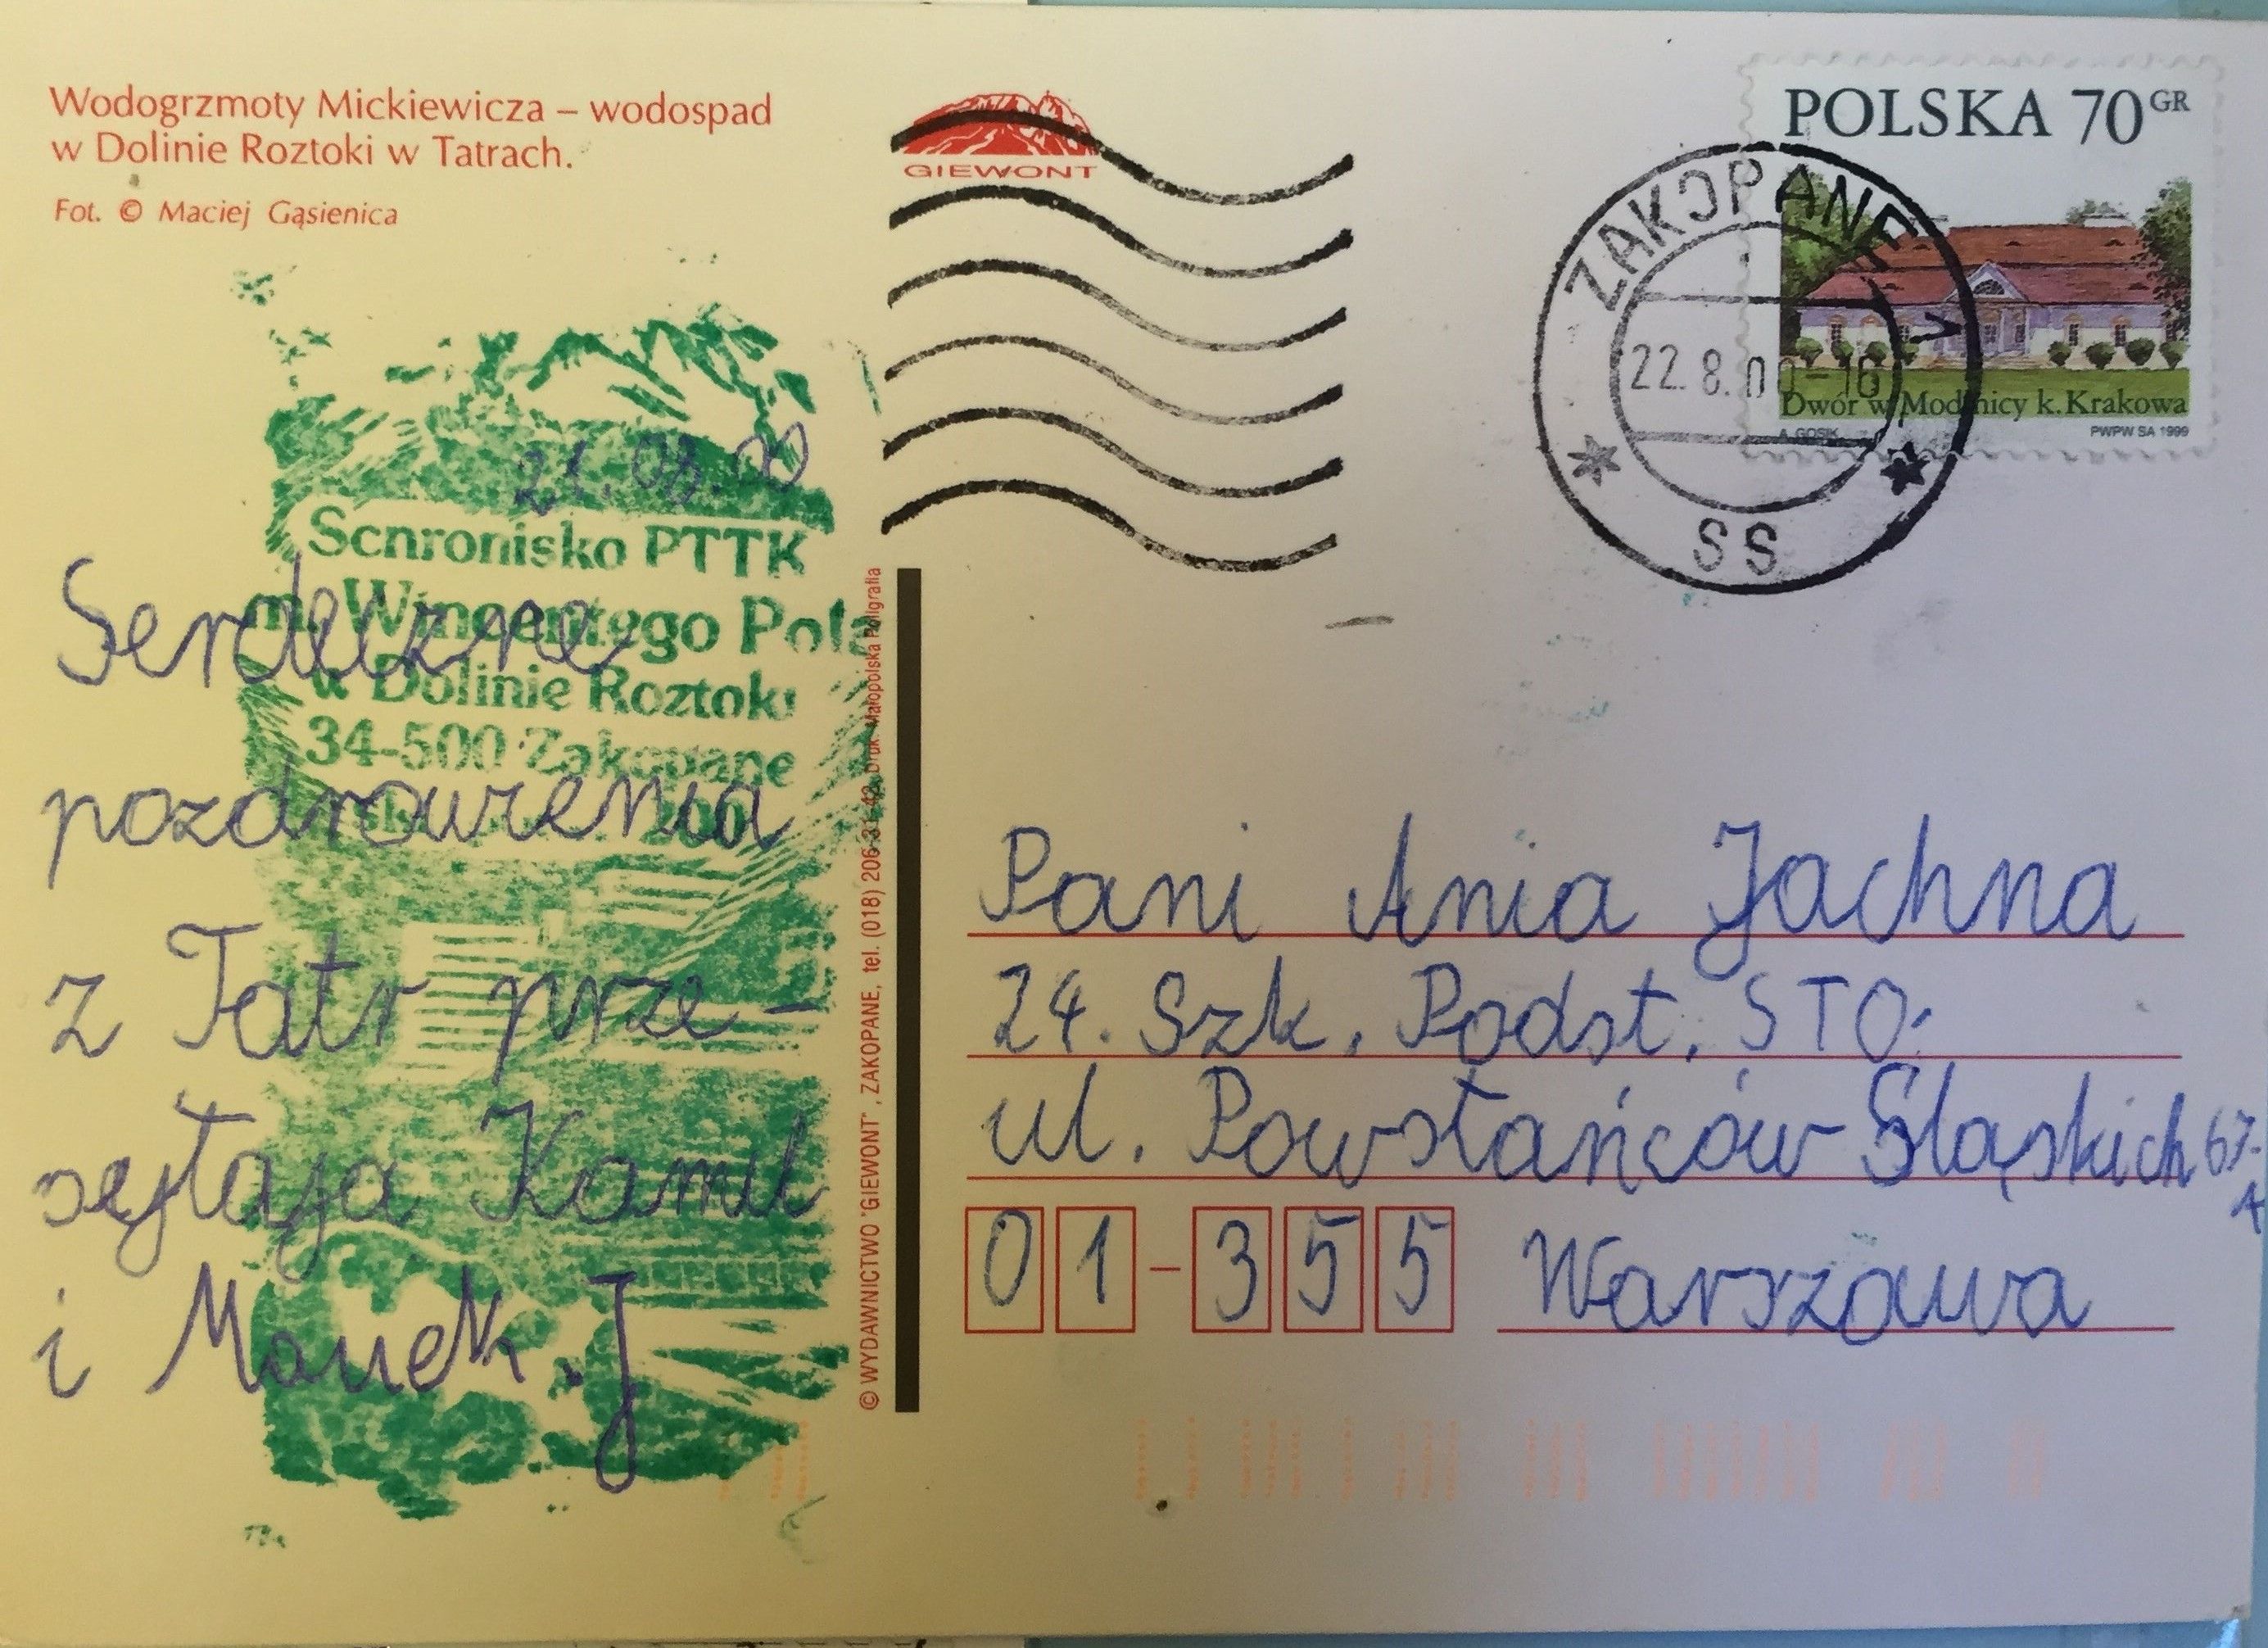 Wodogrzmoty Mickiewicza – wodospad
w Dolinie Roztoki w Tatrach.
Fot. © Maciej Gąsienica
GIEWONT
POLSKA 70 GR
Dwór w Modlnicy k. Krakowa
A. GOSIK
PWPW SA 1999
ZAKOPANE
22.8.00-16
SS
21.08.00
Schronisko PTTK
im. Wincentego Pola
w Dolinie Roztoki
34-500 Zakopane
Serdeczne
pozdrowienia
z Tatr prze-
syłają Kamil
i Maciek. J
© WYDAWNICTWO "GIEWONT", ZAKOPANE, tel. (018) 206 31 42, Druk. Małopolska Poligrafia
Pani Ania Jachna
24. Szk. Podst. STO.
ul. Powstańców Śląskich 67-
A
01-355 Warszawa